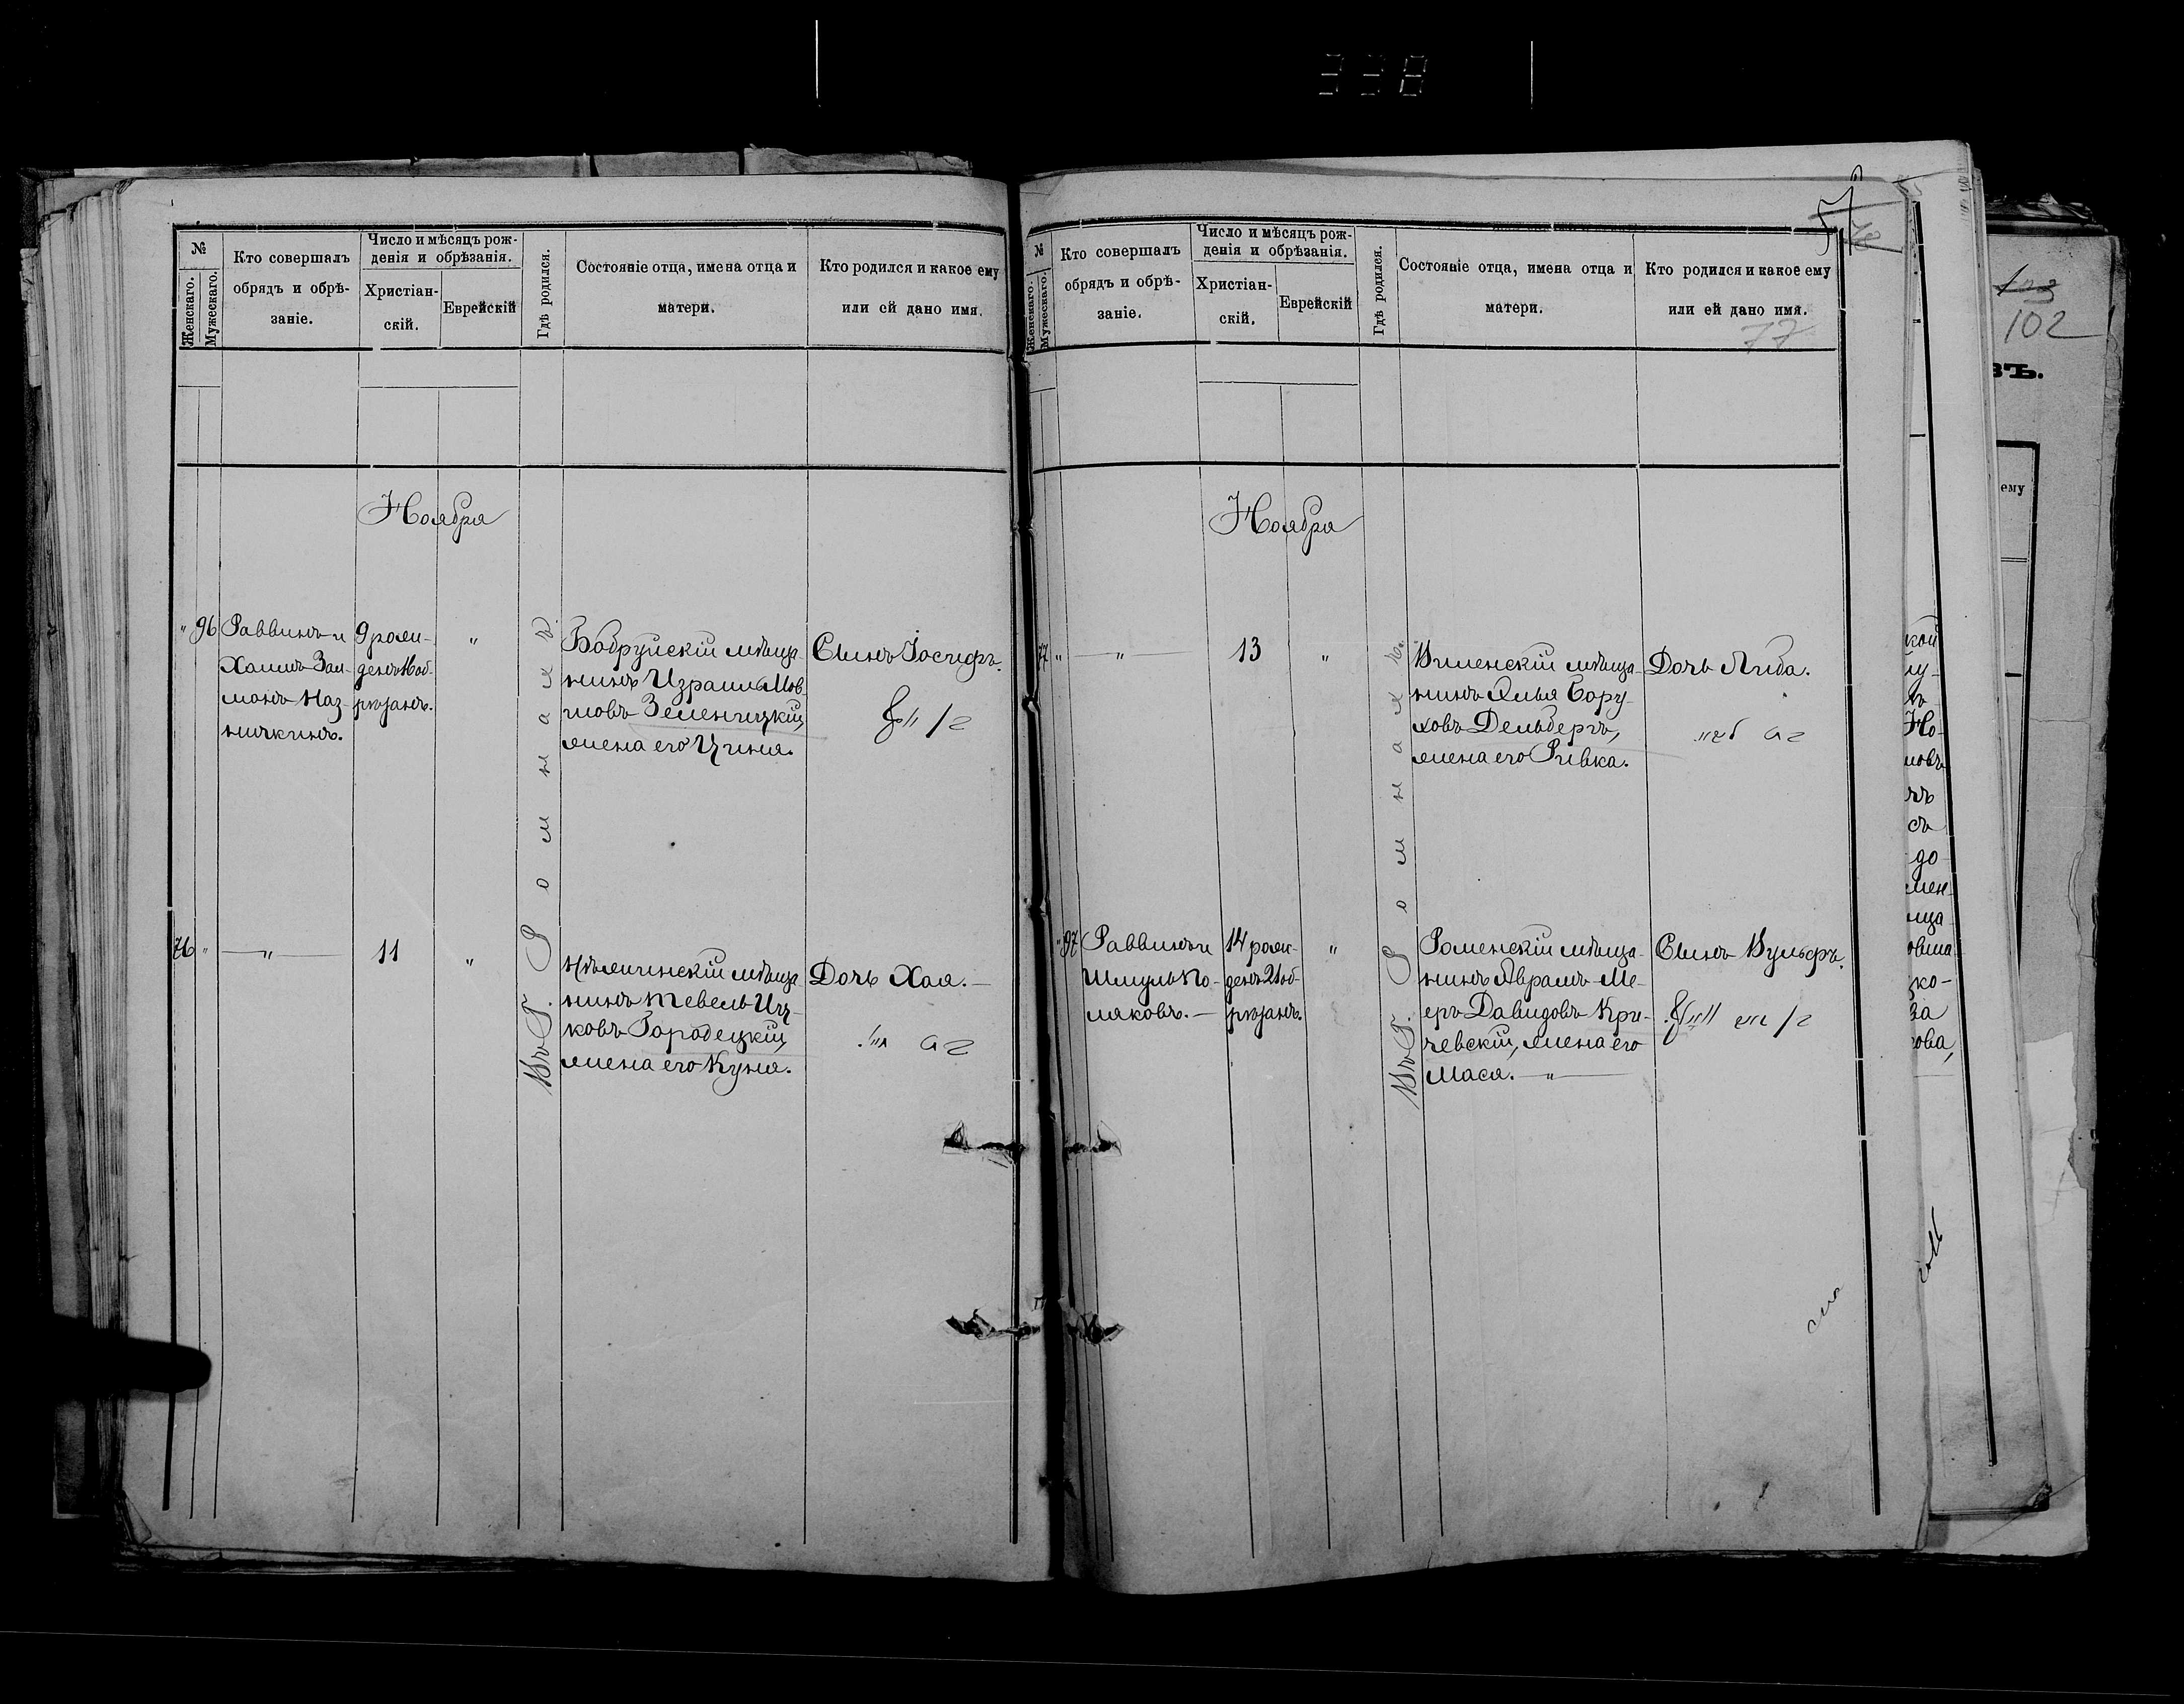 338
№
Женскаго.
Мужескаго.
Кто совершалъ
обрядъ и обрѣ-
заніе.
Число и мѣсяцъ рож-
денія и обрѣзанія.
Христіан-
скій.
Еврейскій
Гдѣ родился.
Состояніе отца, имена отца и
матери.
Кто родился и какое ему
или ей дано имя.
Ноября
" 96
Раввинъ и
Хаимъ Зал-
монъ Наз-
9 рожд-
денъ 16 об-
рѣзанъ.
"
Въ Г. Ромнахъ.
Бобруйскій мѣща-
нинъ Израиль Мов-
шовъ Зеленчицкій,
жена его Цина.
Сынъ Іосифъ.
76 "
— " —
11
"
мѣща-
нинъ Тевель Иц-
ковъ Городецкій,
жена его Куня.
Дочь Хая. —
№
Женскаго.
Мужескаго.
Кто совершалъ
обрядъ и обрѣ-
заніе.
Число и мѣсяцъ рож-
денія и обрѣзанія.
Христіан-
скій.
Еврейскій
Гдѣ родился.
Состояніе отца, имена отца и
матери.
Кто родился и какое ему
или ей дано имя.
77
Ноября
77 "
— " —
13
"
Въ Г. Ромнахъ.
Виленскій мѣща-
нинъ Илья Бору-
ховъ Дельбергъ,
жена его Ривка.
Дочь Либа.
" 97
Раввинъ и
Шмуль По-
ляковъ. —
14 рож-
денъ 21 об-
рѣзанъ.
"
Роменскій мѣща-
нинъ Абрамъ-Ме-
еръ Давидовъ Кри-
чевскій, жена его
Мася. — " —
Сынъ Вульфъ.
102
въ.
ему